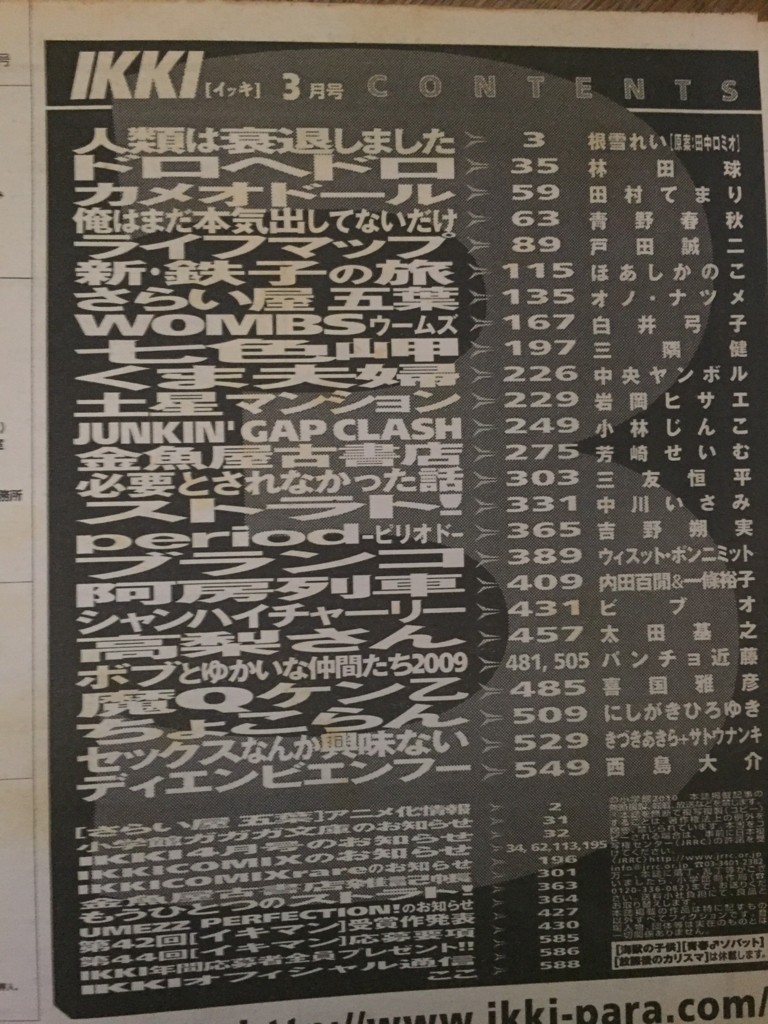 IKKI [イッキ] 3月号 CONTENTS
人類は衰退しました 3 根雪れい[原案:田中ロミオ]
ドロヘドロ 35 林田球
カメオドール 59 田村てまり
俺はまだ本気出してないだけ 63 青野春秋
ライフマップ 89 戸田誠二
新・鉄子の旅 115 ほあしかのこ
さらい屋 五葉 135 オノ・ナツメ
WOMBS ウームズ 167 白井弓子
七色岬 197 三隅健
くま夫婦 226 中央ヤンボル
土星マンション 229 岩岡ヒサエ
JUNKIN' GAP CLASH 249 小林じんこ
金魚屋古書店 275 芳崎せいむ
必要とされなかった話 303 三友恒平
ストラト! 331 中川いさみ
period-ピリオド- 365 吉野朔実
ブランコ 389 ウィスット・ポンニミット
阿房列車 409 内田百閒&一條裕子
シャンハイチャーリー 431 ビブオ
高梨さん 457 太田基之
ボブとゆかいな仲間たち2009 481, 505 バンチョ近藤
魔Qケン乙 485 喜国雅彦
ちょこらん 509 にしがきひろゆき
セックスなんか興味ない 529 きづきあきら+サトウナンキ
ディエンビエンフー 549 西島大介
[さらい屋 五葉]アニメ化情報 2
小学館ガガガ文庫のお知らせ 31
IKKI4月号のお知らせ 32
IKKICOMIXのお知らせ 34, 62, 113, 195
IKKICOMIXrareのお知らせ 196
金魚屋古書店雑記帳 301
もうひとつのストラト! 363
UMEZZ PERFECTION!のお知らせ 364
第42回[イキマン]受賞作発表 427
第44回[イキマン]応募要項 430
IKKI年間応募者全員プレゼント!! 585
IKKIオフィシャル通信 586
ここ 588
[海獣の子供][青春♂ソバット]
[放課後のカリスマ]は休載します。
http://www.ikki-para.com/